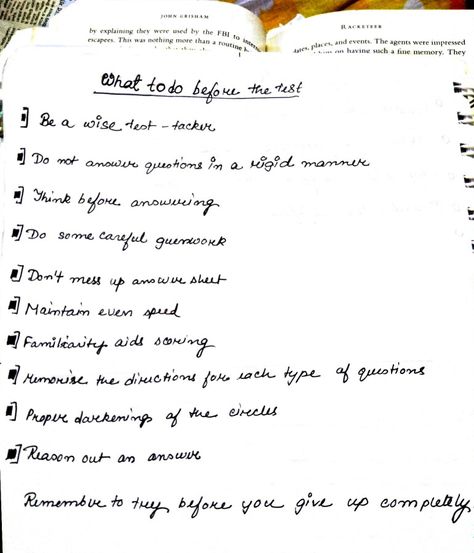 JOHN GRISHAM
by explaining they were used by the FBI to
escapees. This was nothing more than a routine
RACKETEER
dates, places, and events. The agents were impressed
on having such a fine memory. They
What to do before the test
Be a wise test-tacker
Do not answer questions in a rigid manner
Think before answering
Do some careful guesswork
Don't mess up answer sheet
Maintain even speed
Familiarity aids scoring
Memorise the directions for each type of questions
Proper darkenings of the circles
Reason out an answer
Remember to try before you give up completely